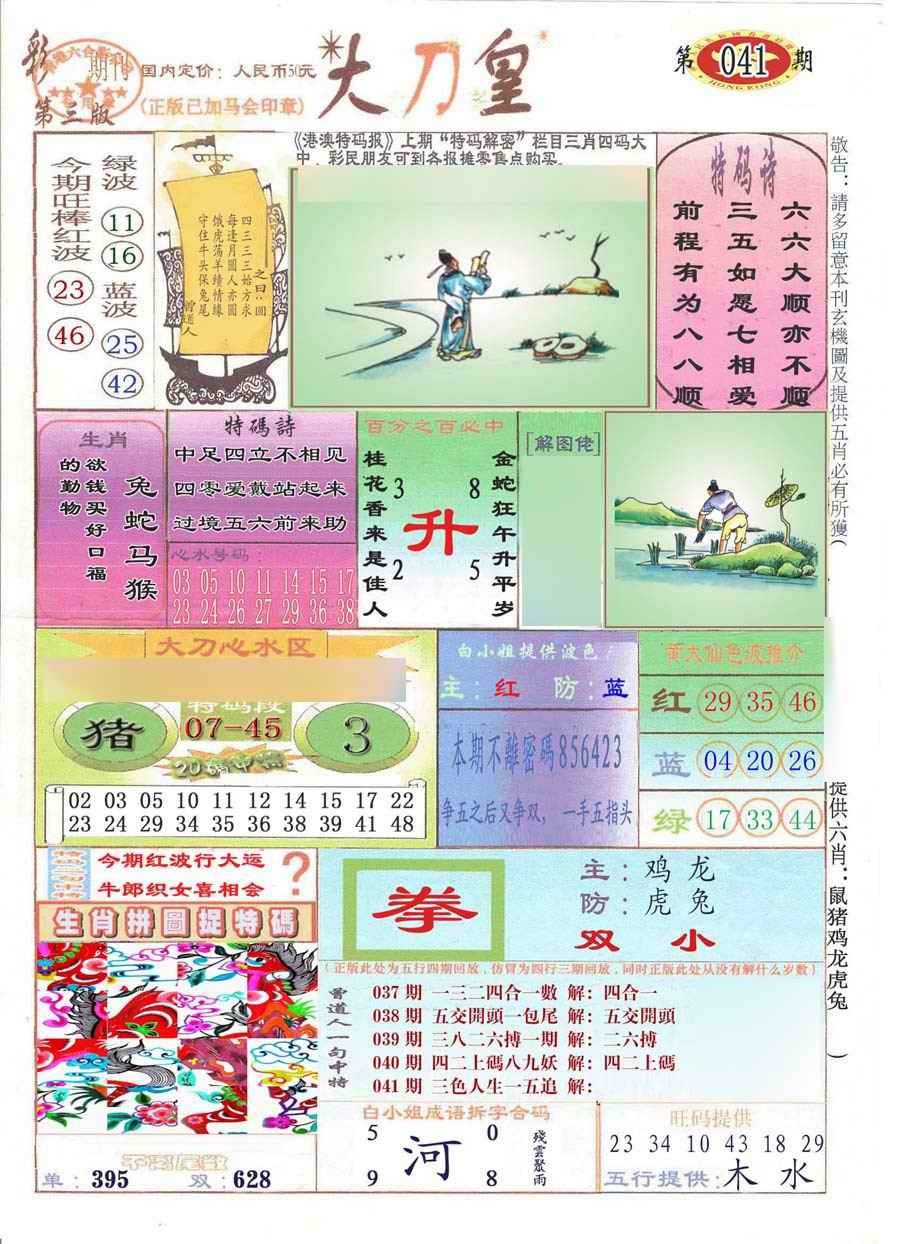 彩
期刊
第三版
国内定价：人民币50元
(正版已加马会印章)
大刀皇
第 041 期
HONG KONG
《港澳特码报》上期“特码解密”栏目三肖四码大
中，彩民朋友可到各报摊零售点购买。
今期旺棒红波
23
46
绿波
11
16
蓝波
25
42
之曰：圆
四三三三始方求
每逢月圆人亦圆
饿虎荡羊续情缘
守住牛头保兔尾
曾道人
特码诗
六六大顺亦不顺
三五如愿七相爱
前程有为八八顺
敬告：請多留意本刊玄機圖及提供五肖必有所獲(
提供六肖：鼠猪鸡龙虎兔 )
生肖
兔蛇马猴
欲钱买好口福
的勤物
特碼詩
中足四立不相见
四零爱戴站起来
过境五六前来助
心水号码：
03 05 10 11 14 15 17
23 24 26 27 29 36 38
百分之百必中
金蛇狂午升平岁
桂花香来是佳人
3 8
升
2 5
[解图佬]
大刀心水区
特码段
猪
07-45
3
20碼中特
02 03 05 10 11 12 14 15 17 22
23 24 29 34 35 36 38 39 41 48
白小姐提供波色
主：红 防：蓝
本期不離密碼856423
争五之后又争双，一手五指头
黄大仙色波推介
红 29 35 46
蓝 04 20 26
绿 17 33 44
今期红波行大运
牛郎织女喜相会
?
生肖拼圖捉特碼
拳
主：鸡 龙
防：虎 兔
双 小
(正版此处为五行四期回放，仿冒为四行三期回放，同时正版此处从没有解什么岁数)
曾道人一句中特
037期 一三二四合一數 解：四合一
038期 五交開頭一包尾 解：五交開頭
039期 三八二六搏一期 解：二六搏
040期 四二上碼八九妖 解：四二上碼
041期 三色人生一五追 解：
单：395 双：628
白小姐成语拆字合码
5 0
河
9 8
殘雲聚雨
旺码提供
23 34 10 43 18 29
五行提供：木 水